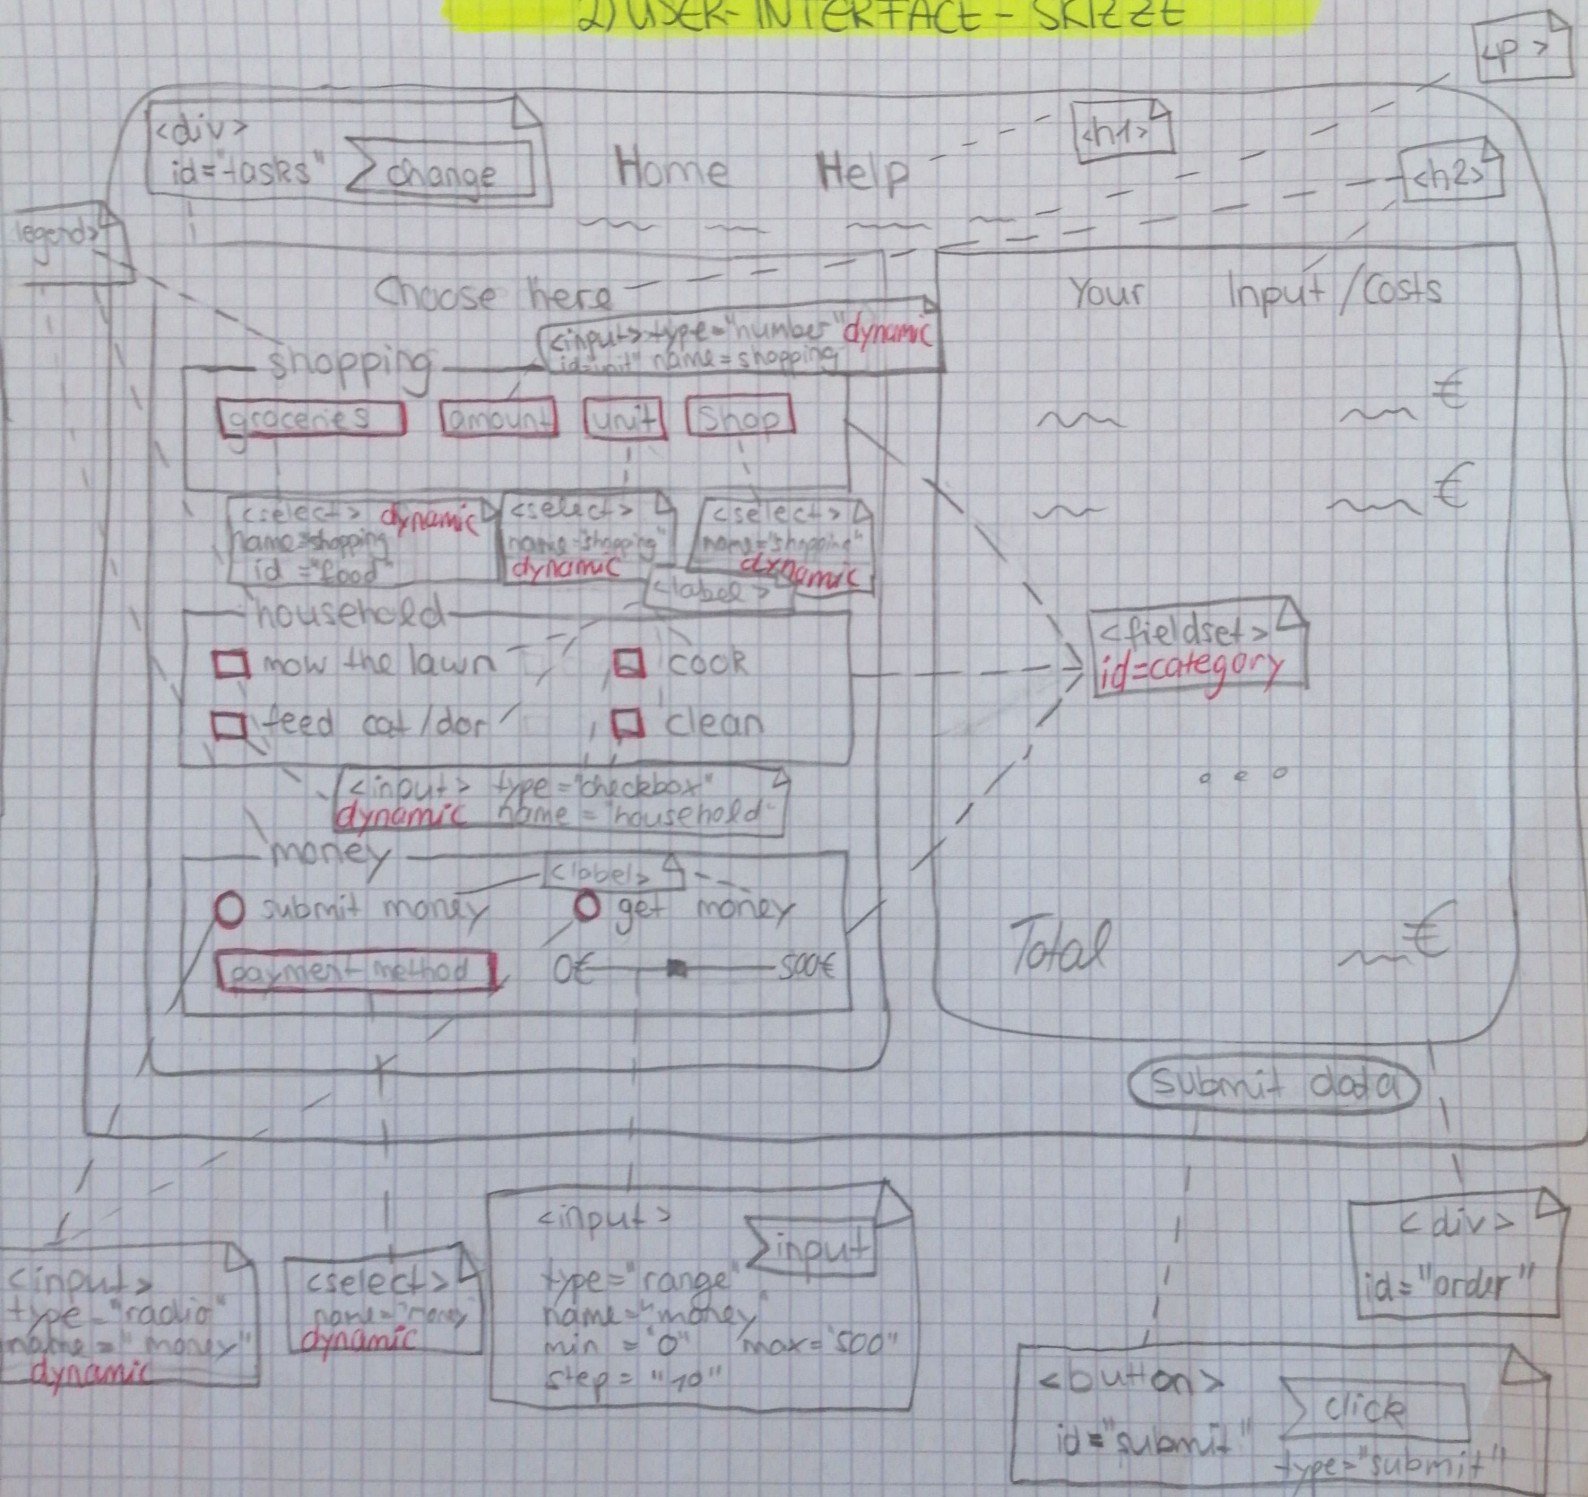 2) USER-INTERFACE-SKIZZE
<p>
<div>
id="tasks" change
Home Help
<h1>
<h2>
legend>
Choose here
Your Input/Costs
<input> type="number" dynamic
id="init" name=shopping
shopping
groceries amount unit shop
€
€
<select> dynamic
name=shopping
id="food"
<select>
name="shopping"
dynamic
<select>
name="shopping"
dynamic
<label>
household
mow the lawn cook
feed cat/dor clean
<fieldset>
id=category
<input> type="checkbox"
dynamic name="household"
money
<label>
submit money get money
payment method 0€ 500€
Total €
submit data
<input>
type="radio"
name="money"
dynamic
<select>
name="money"
dynamic
<input> input
type="range"
name="money"
min="0" max="500"
step="10"
<div>
id="order"
<button> click
id="submit" type="submit"